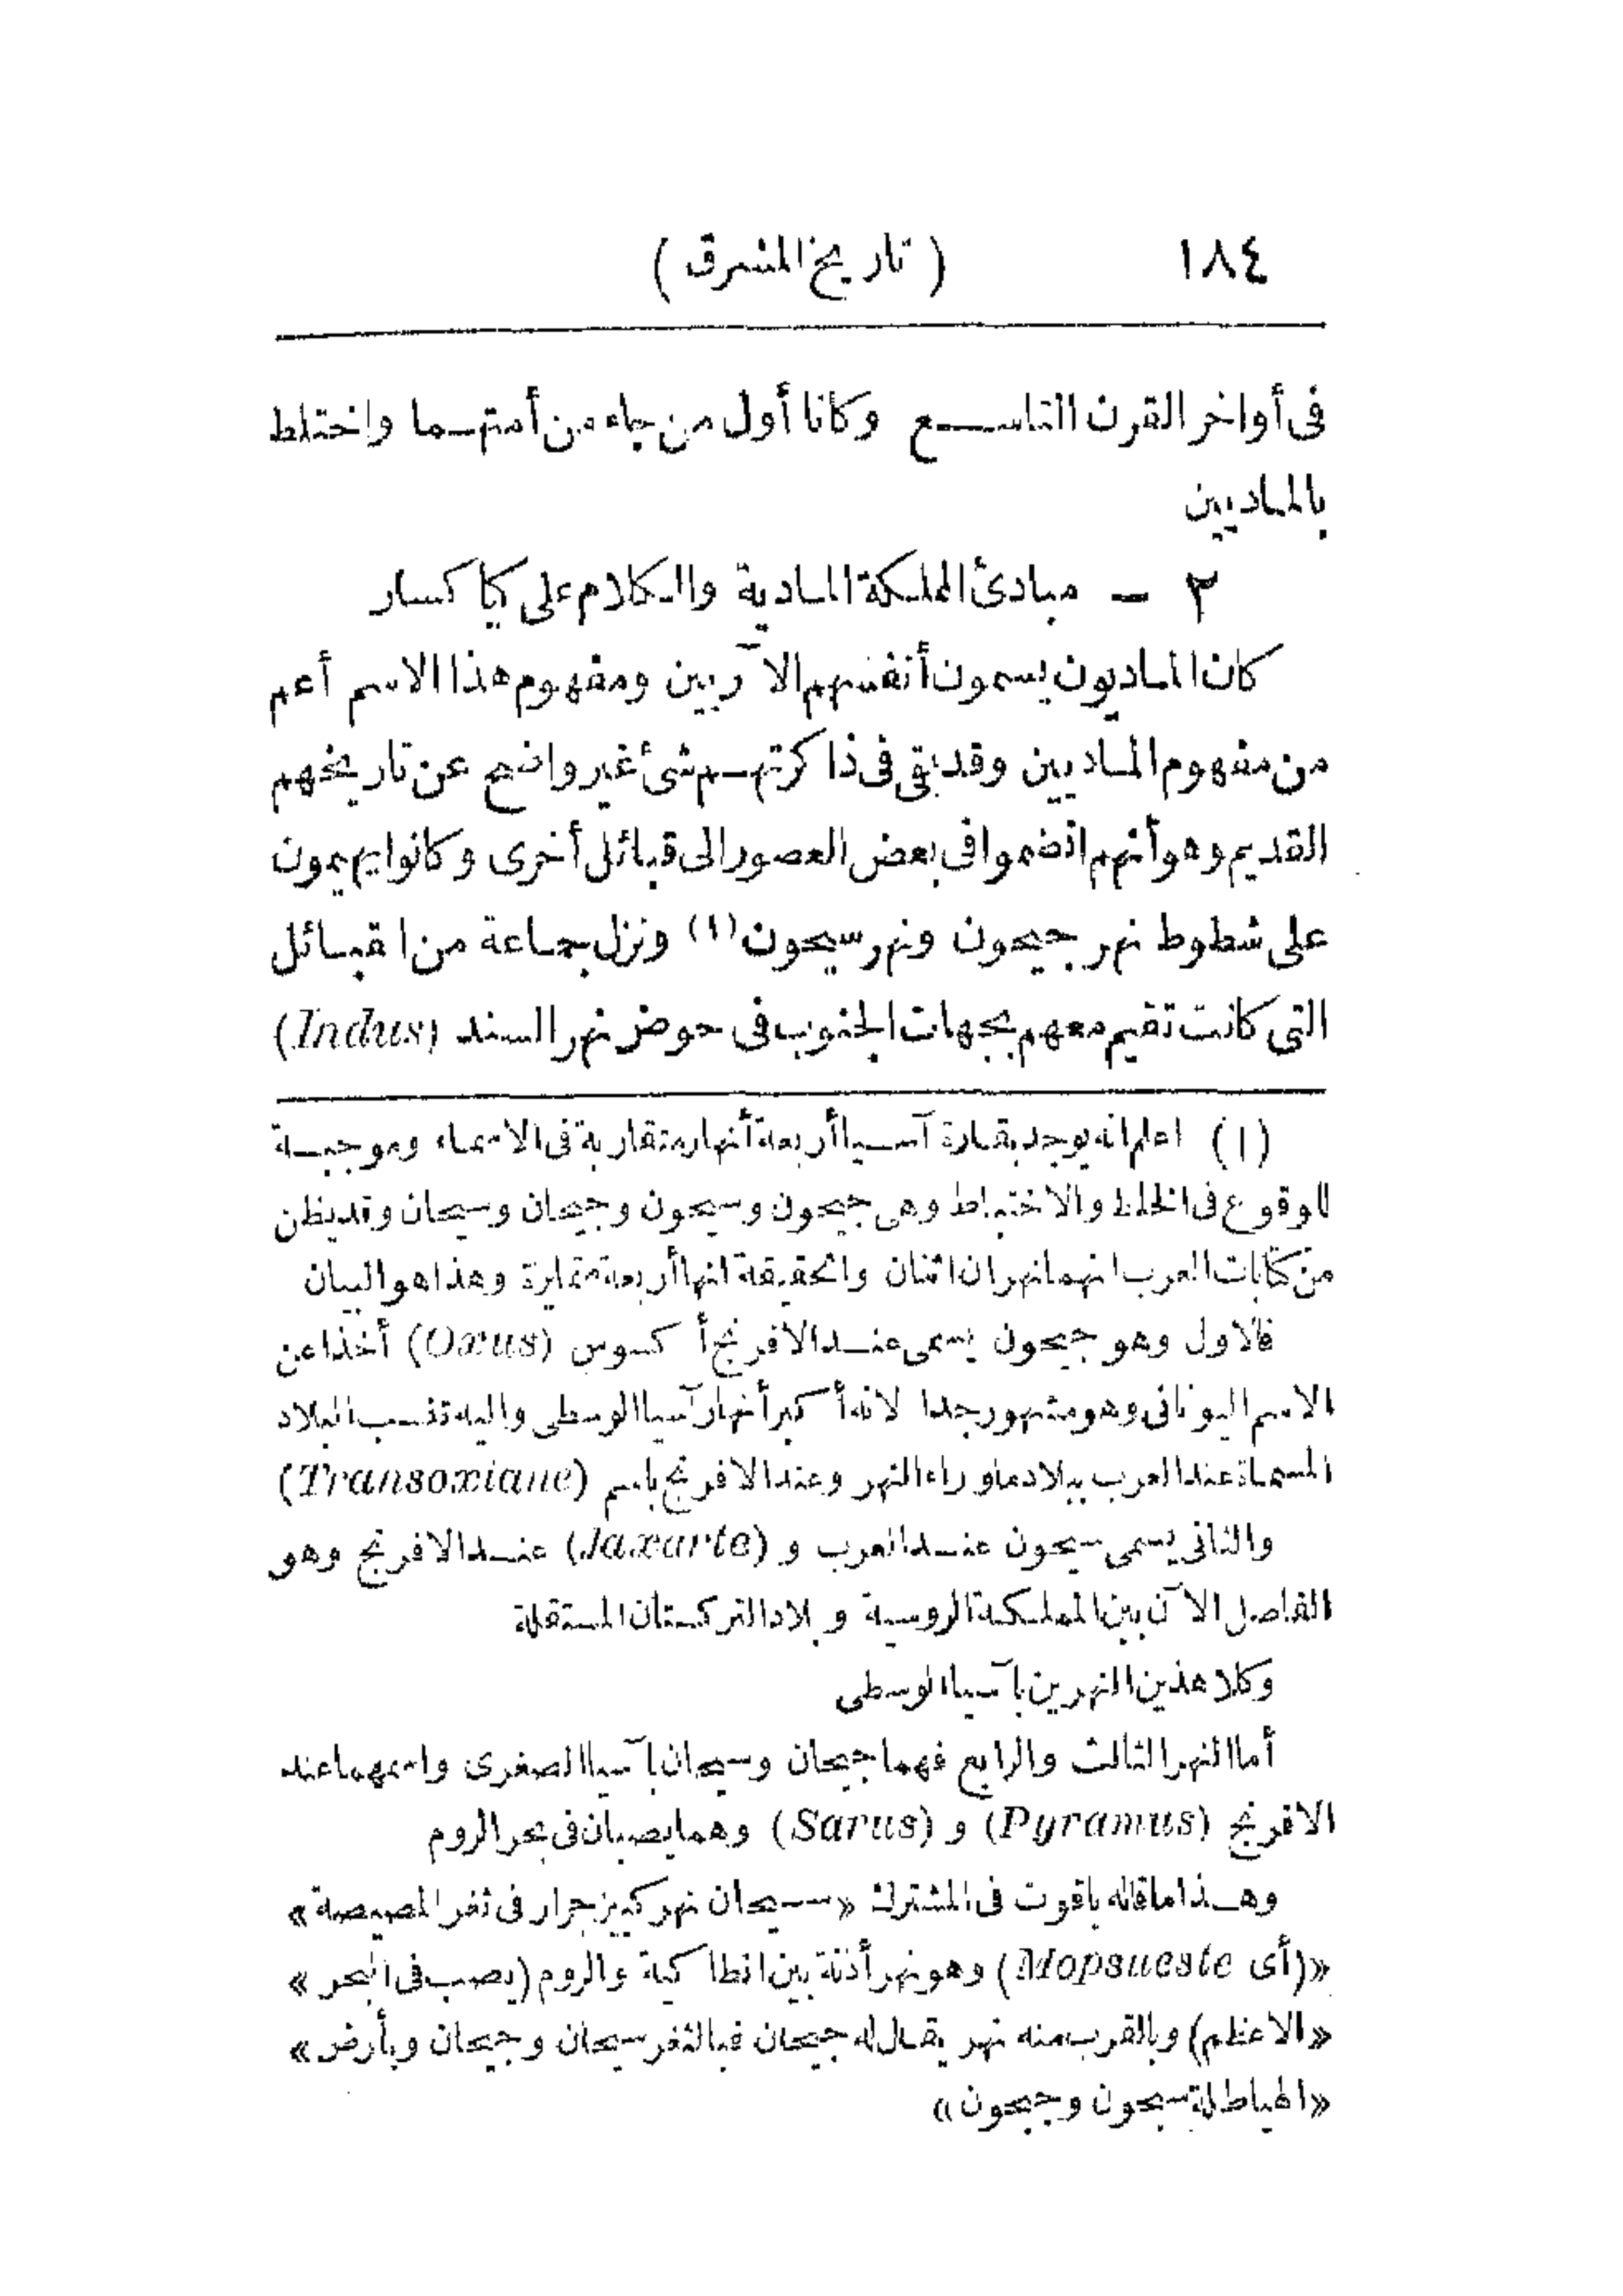 ١٨٤ ( تاريخ المشرق )
فى أواخر القرن التاسع وكانا أول من جاء من أمتهما واختلط
بالماديين
٢ - مبادئ المملكة المادية والكلام على كياكسار
كان الماديون يسمون أنفسهم الآريين ومفهوم هذا الاسم أعم
من مفهوم الماديين وقد بقى فى ذاكرتهم شئ غير واضح عن تاريخهم
القديم وهو أنهم انضموا فى بعض العصور الى قبائل أخرى وكانوا يهيمون
على شطوط نهر جيحون ونهر سيحون (١) ونزل بجماعة من القبائل
التى كانت تقيم معهم بجهات الجنوب فى حوض نهر السند (Indus)
(١) اعلم انه يوجد بقارة آسيا أربعة أنهار متقاربة فى الاسماء وموجبة
للوقوع فى الخلط والاختباط وهى جيحون وسيحون وجيحان وسيحان وقد يظن
من كتابات العرب انهما نهران اثنان والحقيقة انها أربعة متمايزة وهذا هو البيان
فالاول وهو جيحون يسمى عند الافرنج أكسوس (Oxus) أخذا عن
الاسم اليونانى وهو مشهور جدا لانه أكبر أنهار آسيا الوسطى واليه تنسب البلاد
المسماة عند العرب ببلاد ماوراء النهر وعند الافرنج باسم (Transoxiane)
والثانى يسمى سيحون عند العرب و (Jaxarte) عند الافرنج وهو
الفاصل الآن بين المملكة الروسية وبلاد التركستان المستقلة
وكلا هذين النهرين بآسيا الوسطى
أما النهر الثالث والرابع فهما جيحان وسيحان بآسيا الصغرى واسمهما عند
الافرنج (Pyramus) و (Sarus) وهما يصبان فى بحر الروم
وهذا ما قاله ياقوت فى المشترك «سيحان نهر كبير جرار فى ثغر المصيصة»
«(أى Mopsueste) وهو نهر أذنة بين انطاكية والروم (يصب فى البحر»
«الاعظم) وبالقرب منه نهر يقال له جيحان فبالثغر سيحان وجيحان وبأرض»
«الهياطلة سيحون وجيحون»